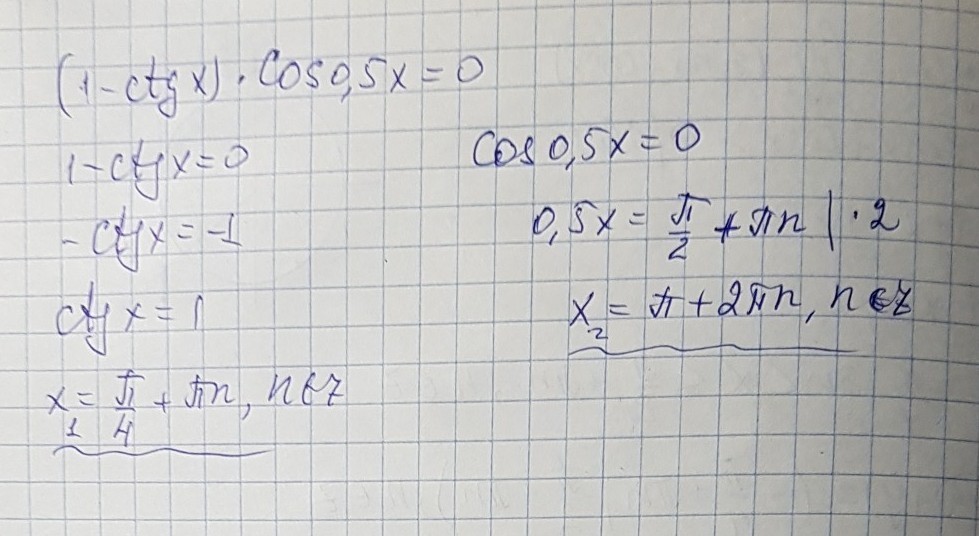 (1-ctg x) · Cos 0,5x = 0
1-ctg x = 0
- ctg x = -1
ctg x = 1
x₁ = π/4 + πn, n∈z
Cos 0,5x = 0
0,5x = π/2 + πn | · 2
x₂ = π + 2πn, n∈z